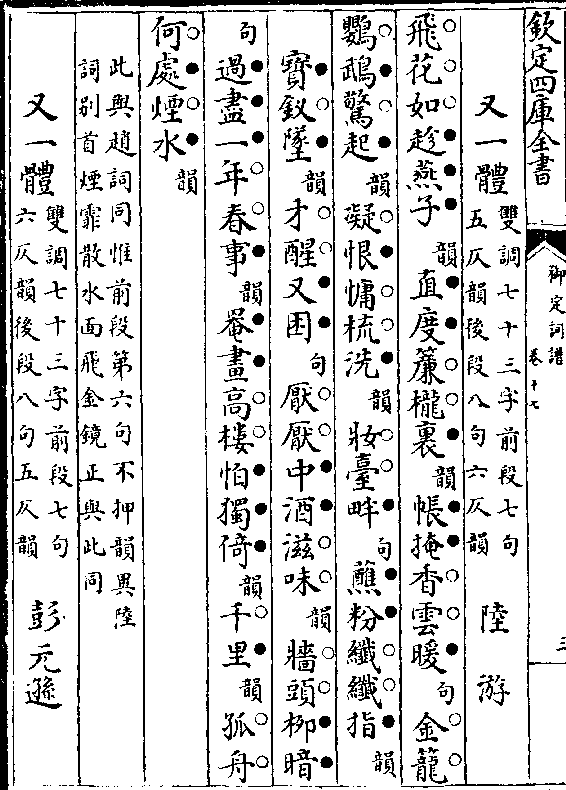 欽定四庫全書
御定詞譜
卷十七
三
又一體 雙調七十三字前段七句
五仄韻後段八句六仄韻 陸游
飛花如趁燕子韻直度簾櫳裏韻帳掩香雲暖句金籠
鸚鵡驚起韻凝恨慵梳洗韻妝臺畔句蘸粉纖纖指韻
寶釵墜韻才醒又困句厭厭中酒滋味韻牆頭柳暗
句過盡一年春事韻罨畫高樓怕獨倚韻千里韻孤舟
何處煙水韻
此與趙詞同惟前段第六句不押韻異陸
詞別首煙霏散水面飛金鏡正與此同
又一體 雙調七十三字前段七句
六仄韻後段八句五仄韻 彭元遜